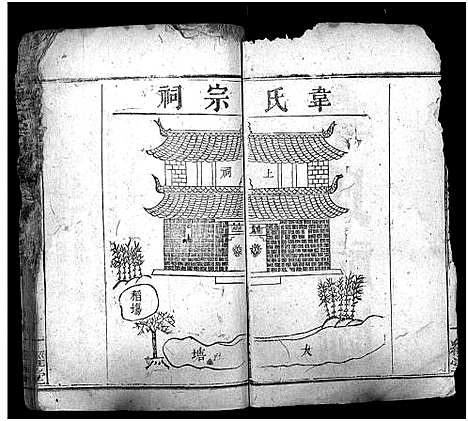 韋氏宗祠
上祠
稻場
大塘